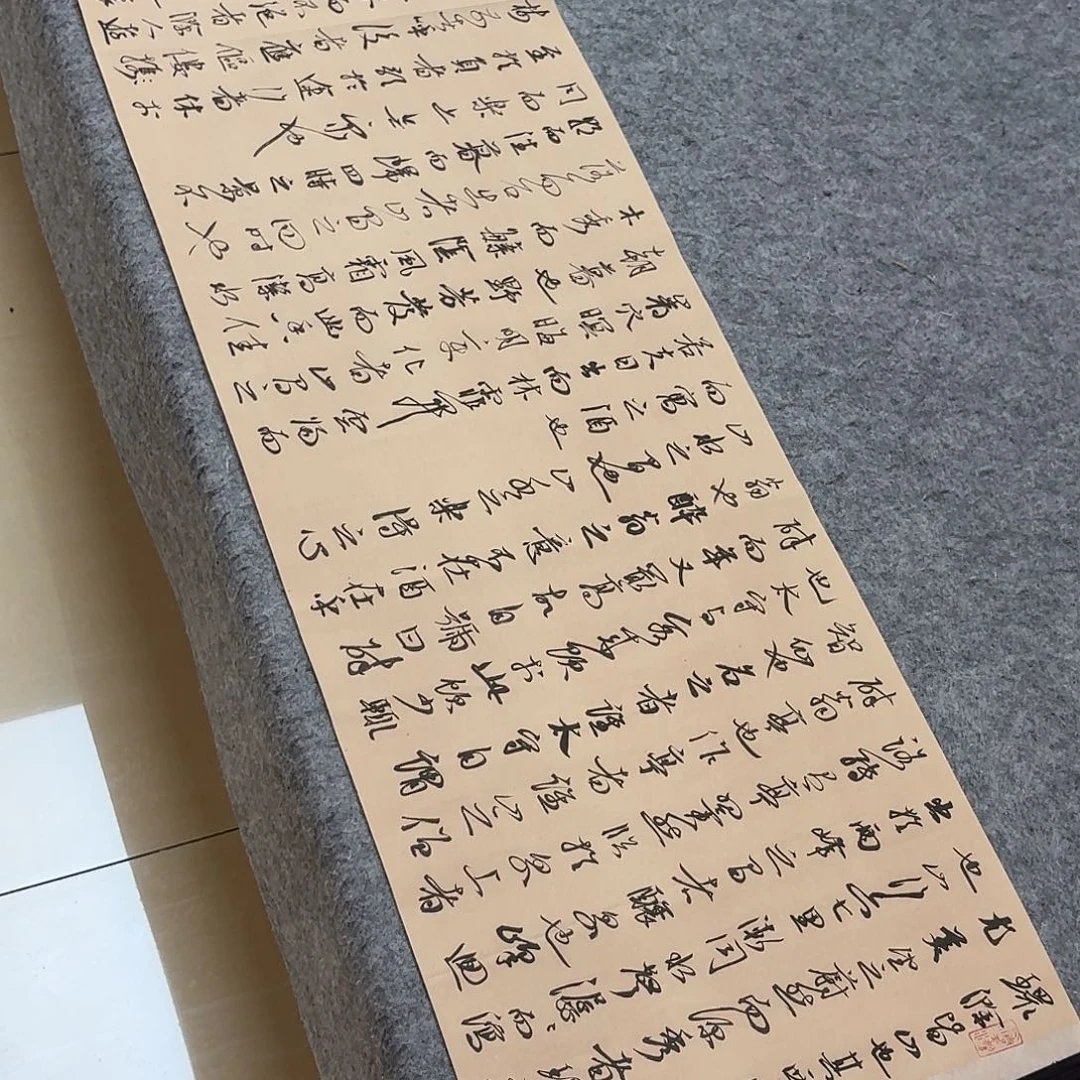 環滁皆山也其西
尤美望之蔚然而深秀者
也山行六七里漸聞水聲潺潺而瀉
出於兩峰之間者釀泉也峰迴
路轉有亭翼然臨於泉上者
醉翁亭也作亭者誰山之僧
智仙也名之者誰太守自謂
也太守與客來飲於此飲少輒
醉而年又最高故自號曰醉
翁也醉翁之意不在酒在乎
山水之間也山水之樂得之心
而寓之酒也
若夫日出而林霏開雲歸而
巖穴暝晦明變化者山間之
朝暮也野芳發而幽香佳
木秀而繁陰風霜高潔水
落而石出者山間之四時也
朝而往暮而歸四時之景不
同而樂亦無窮也
至於負者歌於途行者休於